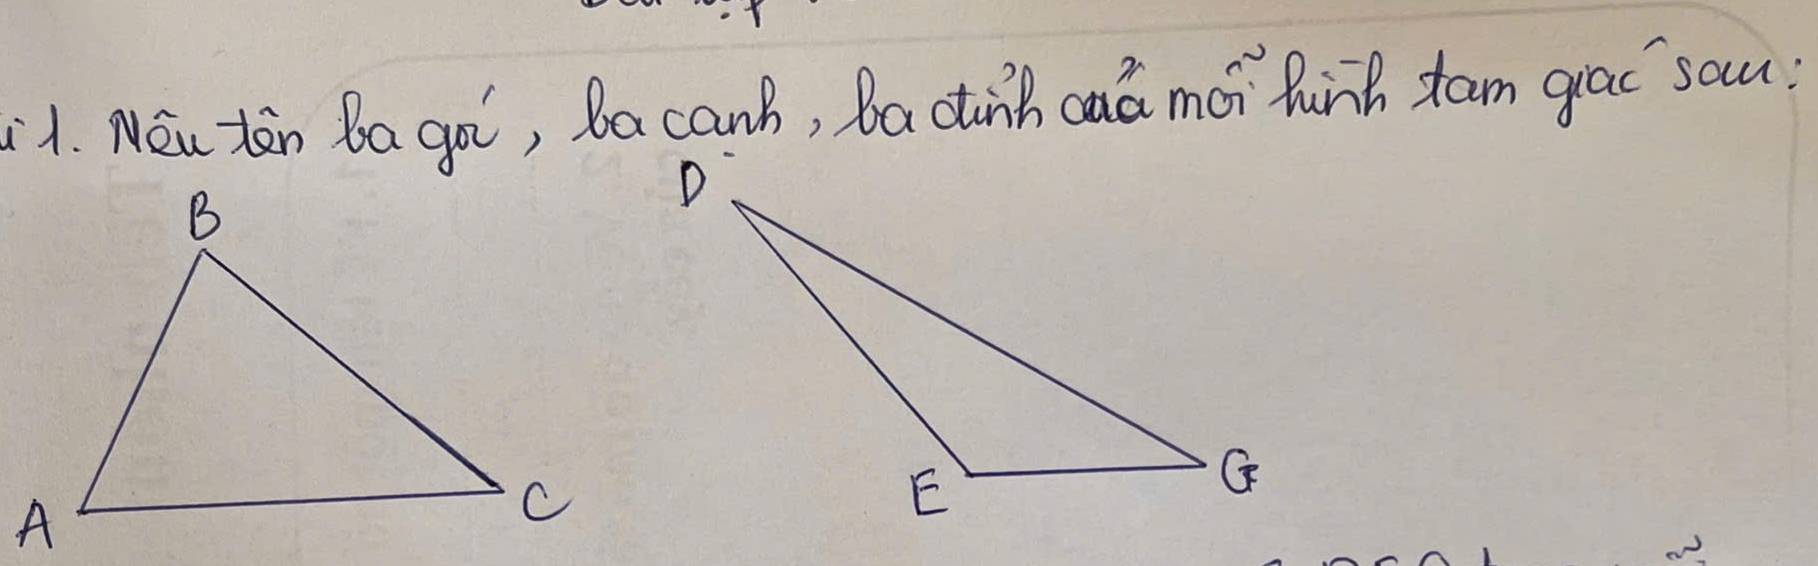 1. Nêu tên ba góc, ba cạnh, ba đỉnh của mỗi hình tam giác sau:
D
B
E
G
A
C